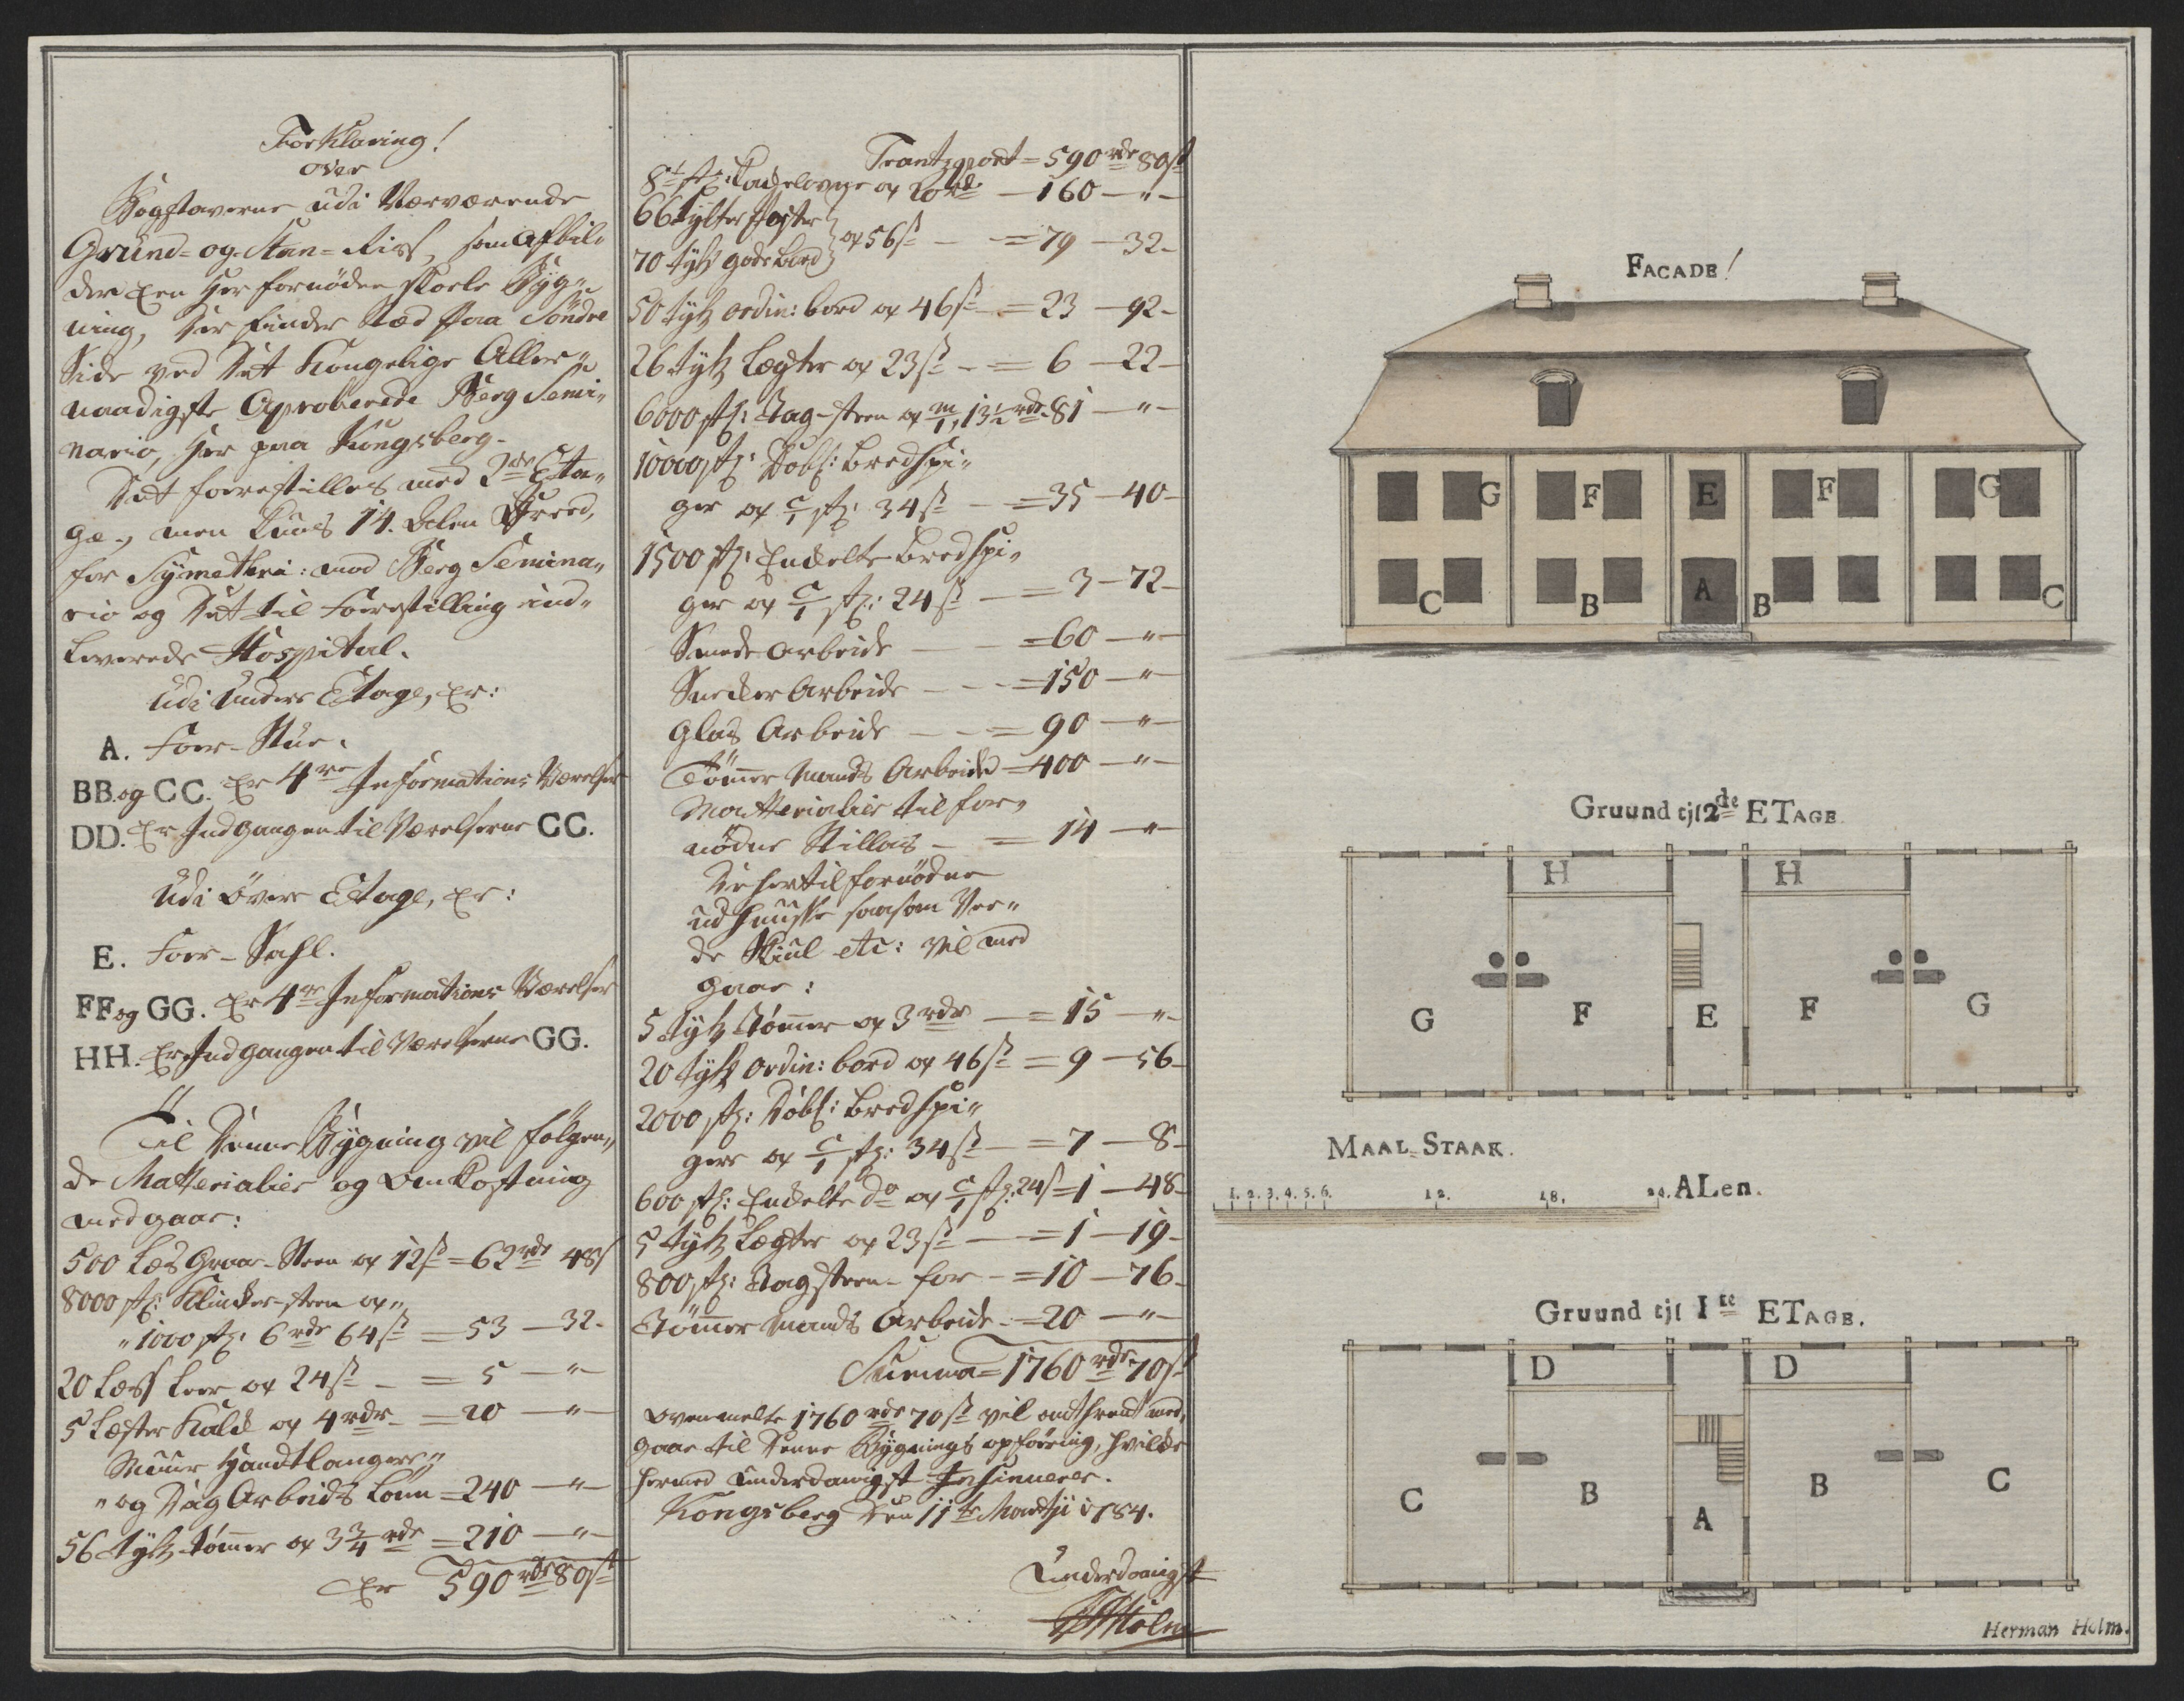 Forklaring!
over
Bogstaverne udi Nærværende
Grund- og Stan-Riss, som afbil„
der een her fornöden skoele Byg„
ning, der finder Stæd paa Söndre
Side ved det Kongelige Aller„
naadigste Aproberede Berg Semi„
nario, her paa Kongsberg.
Det forestilles med 2de Eta„
ge, men kuns 14. Alen Breed,
for Symetheri: med Berg Semina„
rio og det til Forestilling ind„
leverede Hospital.
Udi Under Etage, er:
A. Foer-Stue.
BB. og CC. Er 4re Informations Værelser
DD. Er Indgangen til Værelserne CC.
Udi Övere Etage, er:
E. Foer-Sahl.
FF og GG. Er 4re Informations Værelser
HH. Er Indgangen til Værelserne GG.
Til denne Bygning vil fölgen„
de Matterialier og Omkostning
medgaae:
500 Læs Graae-Steen a 12 s = 62 rdr 48 s
8000 st: Klincker-steen a„
„1000 st: 6 rdr 64 s = 53 — 32 -
20 Læss Leer a 24 s - = 5 — „ —
5 Læster Kald a 4 rdr - = 20 — „ —
Muur Handtlangere„
„og Dag Arbeids Lönn = 240 — „ —
56 tylt tömmer a 3 3/4 rdr = 210 — „ —
Er 590 rdr 80 s
Trantzport = 590 rdr 80 s
8t st: Kackelovne a 20 rd — 160 — „ —
66 tylter
70 tylt gode bord } a 56 s — = 79 — 32 -
50 tylt ordin: bord a 46 s = 23 — 92 -
26 tylt Lægter a 23 s - = 6 — 22 -
6000 st: Tag-steen a m/1, 13 1/2 rdr 81 — „ —
10000 st: Dobl: bredspi„
ger a c/1 st: 34 s - = 35 — 40 -
1500 st: Enckelte bredspi„
ger a c/1 st: 24 s — = 3 — 72 -
Smede Arbeide — = 60 — „ —
Snecker Arbeide — = 150 — „ —
Glas Arbeide — = 90 — „ —
Tömmer Mands Arbeide = 400 — „ —
Matterialier til for„
nödne Stillas — = 14 — „
De hertil fornödne
udhuusse saasom Ve„
de Skiul etc: vil med
gaae:
5 tylt tömmer a 3 rdr — = 15 — „ -
20 tylt ordin: bord a 46 s = 9 — 56 -
2000 st: Dobl: bredspi„
gere a c/1 st: 34 s — = 7 — 8 -
600 st: Enckelte do a c/1 st: 24 s = 1 — 48 -
5 tylt Lægter a 23 s — = 1 — 19 -
800 st: Tagsteen - for - = 10 — 76 -
Tömmer Mands Arbeide - = 20 — „ —
Summa = 1760 rdr 70 s
Ovenmelte 1760 rdr 70 s vil omtrent med„
gaae til denne Bygnings opföring, hvilcke
hermed underdanigst Insinueres.
Kongsberg den 11te Martji 1784.
Underdanigst
HHolm
FACADE!
G F E F G
C B A B C
Gruund tjl 2de ETAGE.
H H
G F E F G
MAAL-STAAK.
1. 2. 3. 4. 5. 6. 12. 18. 24. ALen.
Gruund tjl Ite ETAGE.
D D
C B A B C
Herman Holm.